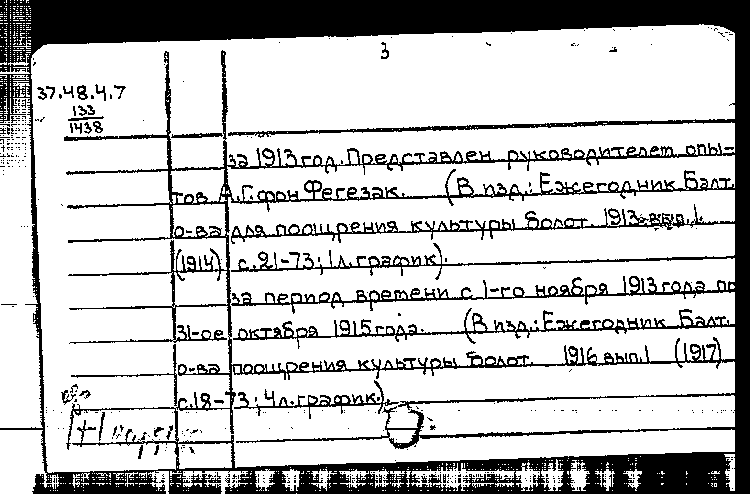 3
37.48.4.7
133
1438
за 1913 год. Представлен руководителем опы-
тов А.Г. фон Фегезак. (В изд.: Ежегодник Балт.
о-ва для поощрения культуры болот. 1913 вып.1.
(1914) с.21-73; 1л. график).
за период времени с 1-го ноября 1913 года по
31-ое октября 1915 года. (В изд.: Ежегодник Балт.
о-ва поощрения культуры болот. 1916 вып.1 (1917)
с.18-73; 4л. график.)